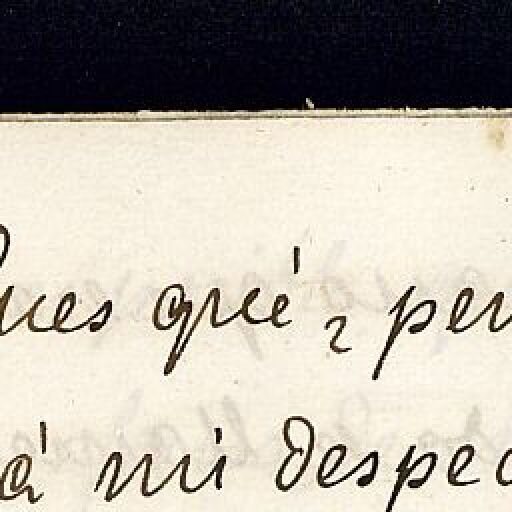 ues qué? pen
á mi despec